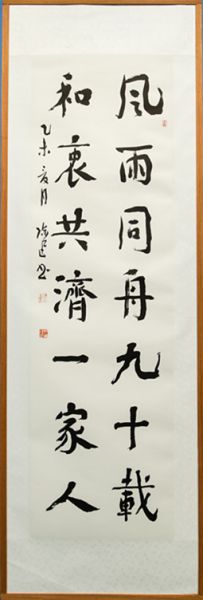 風雨同舟九十載
和衷共濟一家人
乙未夏月